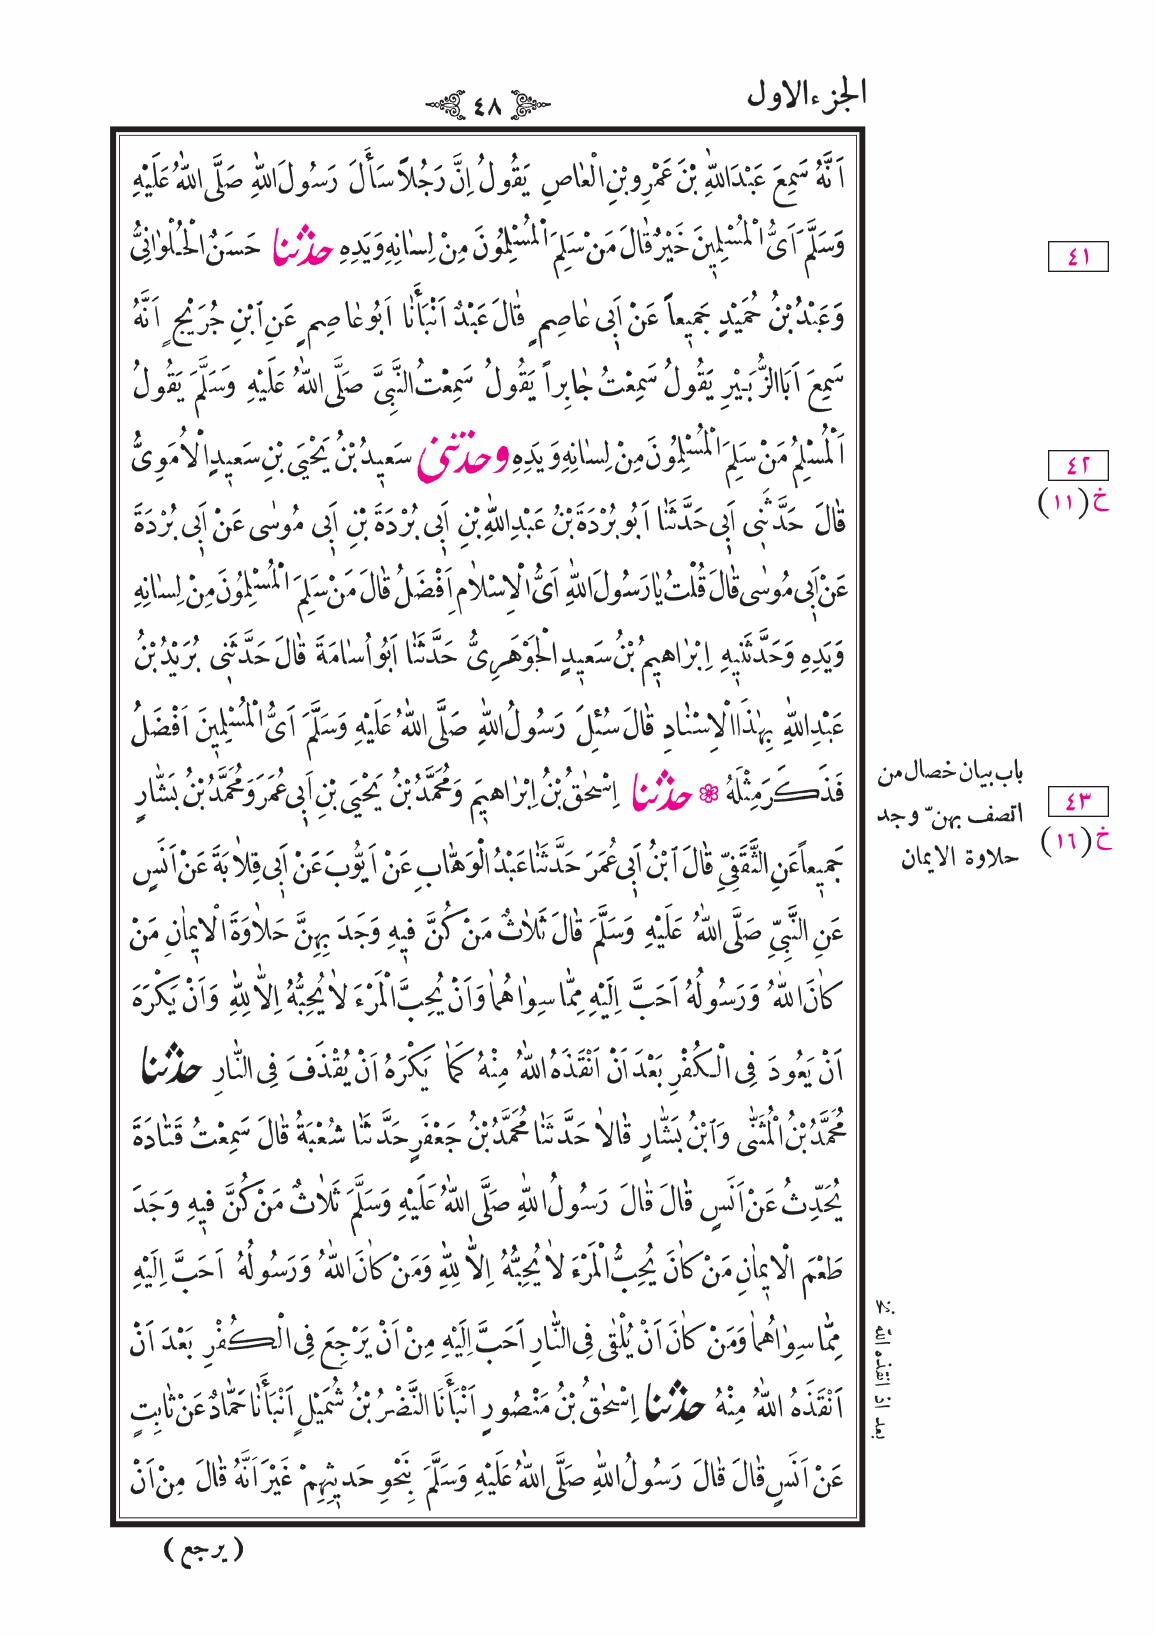 الجزء الاول
٤٨
اَنَّهُ سَمِعَ عَبْدَاللهِ بْنَ عَمْرِوبْنِ الْعَاصِ يَقُولُ اِنَّ رَجُلاً سَأَلَ رَسُولَ اللهِ صَلَّى اللهُ عَلَيْهِ
وَسَلَّمَ اَىُّ الْمُسْلِمِينَ خَيْرٌ قَالَ مَنْ سَلِمَ الْمُسْلِمُونَ مِنْ لِسَانِهِ وَيَدِهِ حدثنا حَسَنٌ الْحُلْوَانِىُّ
٤١
وَعَبْدُ بْنُ حُمَيْدٍ جَمِيعاً عَنْ اَبِى عَاصِمٍ قَالَ عَبْدٌ اَنْبَأَنَا اَبُوعَاصِمٍ عَنِ ابْنِ جُرَيْجٍ اَنَّهُ
سَمِعَ اَبَاالزُّبَيْرِ يَقُولُ سَمِعْتُ جَابِراً يَقُولُ سَمِعْتُ النَّبِىَّ صَلَّى اللهُ عَلَيْهِ وَسَلَّمَ يَقُولُ
اَلْمُسْلِمُ مَنْ سَلِمَ الْمُسْلِمُونَ مِنْ لِسَانِهِ وَيَدِهِ وحدثنى سَعِيدُ بْنُ يَحْيَى بْنِ سَعِيدٍ الْاُمَوِىُّ
٤٢
خ (١١)
قَالَ حَدَّثَنِى اَبِى حَدَّثَنَا اَبُو بُرْدَةَ بْنُ عَبْدِاللهِ بْنِ اَبِى بُرْدَةَ بْنِ اَبِى مُوسَى عَنْ اَبِى بُرْدَةَ
عَنْ اَبِى مُوسَى قَالَ قُلْتُ يَارَسُولَ اللهِ اَىُّ الْاِسْلَامِ اَفْضَلُ قَالَ مَنْ سَلِمَ الْمُسْلِمُونَ مِنْ لِسَانِهِ
وَيَدِهِ وَحَدَّثَنِيهِ اِبْرَاهِيمُ بْنُ سَعِيدٍ الْجَوْهَرِىُّ حَدَّثَنَا اَبُو اُسَامَةَ قَالَ حَدَّثَنِى بُرَيْدُ بْنُ
عَبْدِاللهِ بِهٰذَا الْاِسْنَادِ قَالَ سُئِلَ رَسُولُ اللهِ صَلَّى اللهُ عَلَيْهِ وَسَلَّمَ اَىُّ الْمُسْلِمِينَ اَفْضَلُ
فَذَكَرَ مِثْلَهُ ❁ حدثنا اِسْحٰقُ بْنُ اِبْرَاهِيمَ وَمُحَمَّدُ بْنُ يَحْيَى بْنِ اَبِى عُمَرَ وَمُحَمَّدُ بْنُ بَشَّارٍ
باب بيان خصال من
اتصف بهنّ وجد
حلاوة الايمان
٤٣
خ (١٦)
جَمِيعاً عَنِ الثَّقَفِىِّ قَالَ ابْنُ اَبِى عُمَرَ حَدَّثَنَا عَبْدُ الْوَهَّابِ عَنْ اَيُّوبَ عَنْ اَبِى قِلَابَةَ عَنْ اَنَسٍ
عَنِ النَّبِىِّ صَلَّى اللهُ عَلَيْهِ وَسَلَّمَ قَالَ ثَلَاثٌ مَنْ كُنَّ فِيهِ وَجَدَ بِهِنَّ حَلَاوَةَ الْايمَانِ مَنْ
كَانَ اللهُ وَرَسُولُهُ اَحَبَّ اِلَيْهِ مِمَّا سِوَاهُمَا وَاَنْ يُحِبَّ الْمَرْءَ لَا يُحِبُّهُ اِلاَّ لِلّٰهِ وَاَنْ يَكْرَهَ
اَنْ يَعُودَ فِى الْكُفْرِ بَعْدَ اَنْ اَنْقَذَهُ اللهُ مِنْهُ كَمَا يَكْرَهُ اَنْ يُقْذَفَ فِى النَّارِ حدثنا
مُحَمَّدُ بْنُ الْمُثَنَّى وَابْنُ بَشَّارٍ قَالَا حَدَّثَنَا مُحَمَّدُ بْنُ جَعْفَرٍ حَدَّثَنَا شُعْبَةُ قَالَ سَمِعْتُ قَتَادَةَ
يُحَدِّثُ عَنْ اَنَسٍ قَالَ قَالَ رَسُولُ اللهِ صَلَّى اللهُ عَلَيْهِ وَسَلَّمَ ثَلَاثٌ مَنْ كُنَّ فِيهِ وَجَدَ
طَعْمَ الْايمَانِ مَنْ كَانَ يُحِبُّ الْمَرْءَ لَا يُحِبُّهُ اِلاَّ لِلّٰهِ وَمَنْ كَانَ اللهُ وَرَسُولُهُ اَحَبَّ اِلَيْهِ
مِمَّا سِوَاهُمَا وَمَنْ كَانَ اَنْ يُلْقَى فِى النَّارِ اَحَبَّ اِلَيْهِ مِنْ اَنْ يَرْجِعَ فِى الْكُفْرِ بَعْدَ اَنْ
اَنْقَذَهُ اللهُ مِنْهُ حدثنا اِسْحٰقُ بْنُ مَنْصُورٍ اَنْبَأَنَا النَّضْرُ بْنُ شُمَيْلٍ اَنْبَأَنَا حَمَّادٌ عَنْ ثَابِتٍ
بعد اذ انقذه الله
عَنْ اَنَسٍ قَالَ قَالَ رَسُولُ اللهِ صَلَّى اللهُ عَلَيْهِ وَسَلَّمَ بِنَحْوِ حَدِيثِهِمْ غَيْرَ اَنَّهُ قَالَ مِنْ اَنْ
( يرجع )